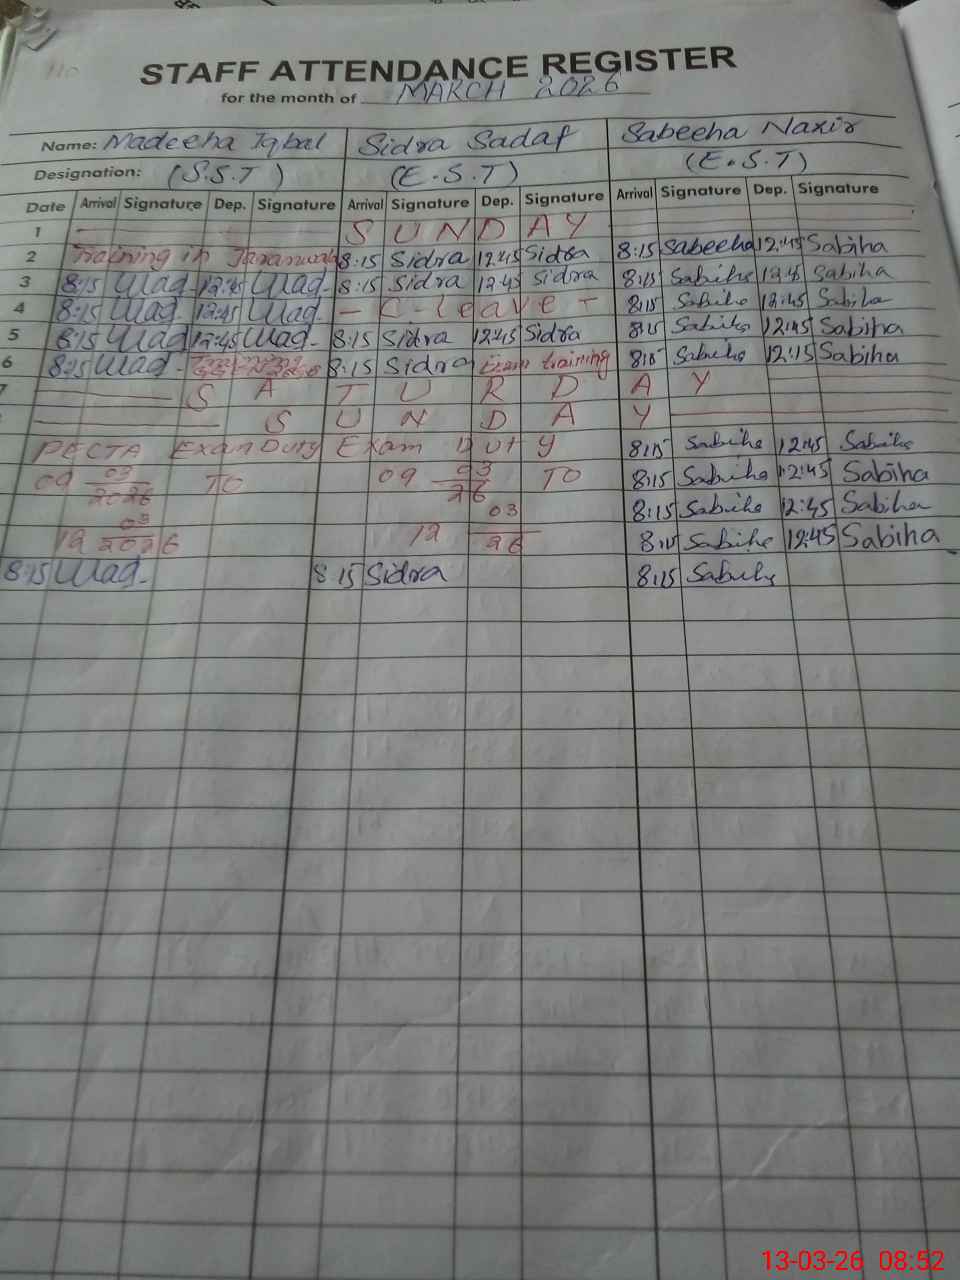 STAFF ATTENDANCE REGISTER
for the month of MARCH 2026
Name: Madeeha Iqbal Sidra Sadaf Sabeeha Nazir
Designation: (S.S.T) (E.S.T) (E.S.T)
Date Arrival Signature Dep. Signature Arrival Signature Dep. Signature Arrival Signature Dep. Signature
1 SUNDAY
2 Training in Jaranwala 8:15 Sidra 12:45 Sidra 8:15 Sabeeha 12:45 Sabiha
3 8:15 12:45 8:15 Sidra 12:45 Sidra 8:15 Sabiha 12:45 Sabiha
4 8:15 12:45 - C-leave - 8:15 Sabiha 12:45 Sabiha
5 8:15 12:45 8:15 Sidra 12:45 Sidra 8:15 Sabiha 12:45 Sabiha
6 8:15 8:15 Sidra Exam training 8:15 Sabiha 12:15 Sabiha
7 SATURDAY
SUNDAY
PECTA Exam Duty Exam Duty 8:15 Sabiha 12:45 Sabiha
09 03 2026 TO 09 03 26 TO 8:15 Sabiha 12:45 Sabiha
8:15 Sabiha 12:45 Sabiha
12 03 2026 12 03 26 8:15 Sabiha 12:45 Sabiha
8:15 8:15 Sidra 8:15 Sabiha
13-03-26 08:52